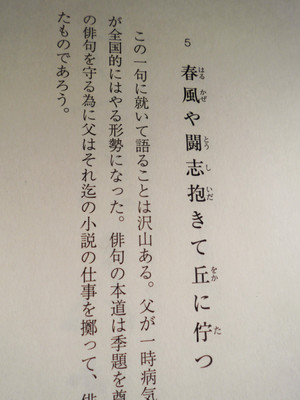 5
春風や闘志抱きて丘に佇つ
この一句に就いて語ることは沢山ある。父が一時病気
が全国的にはやる形勢になった。俳句の本道は季題を尊
の俳句を守る為に父はそれ迄の小説の仕事を擲って、俳
たものであろう。